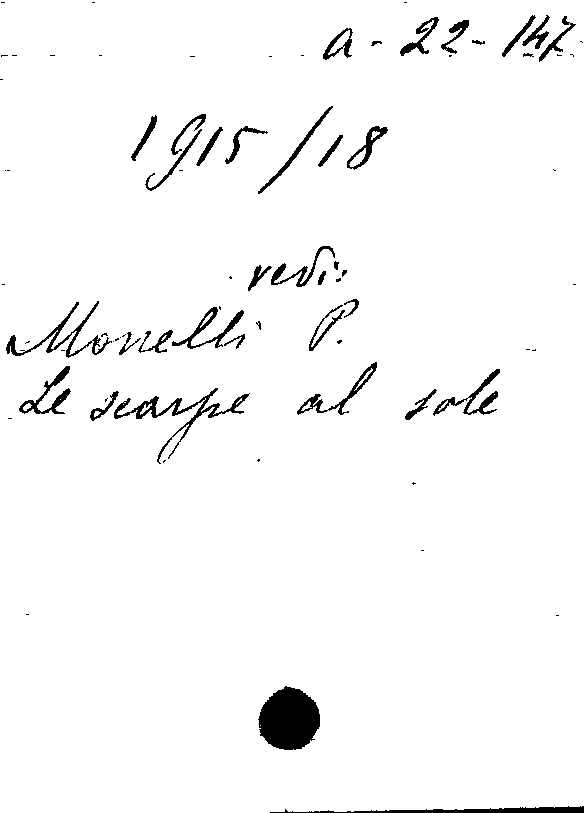 a-22-147
1915/18
vedi:
Monelli P.
Le scarpe al sole